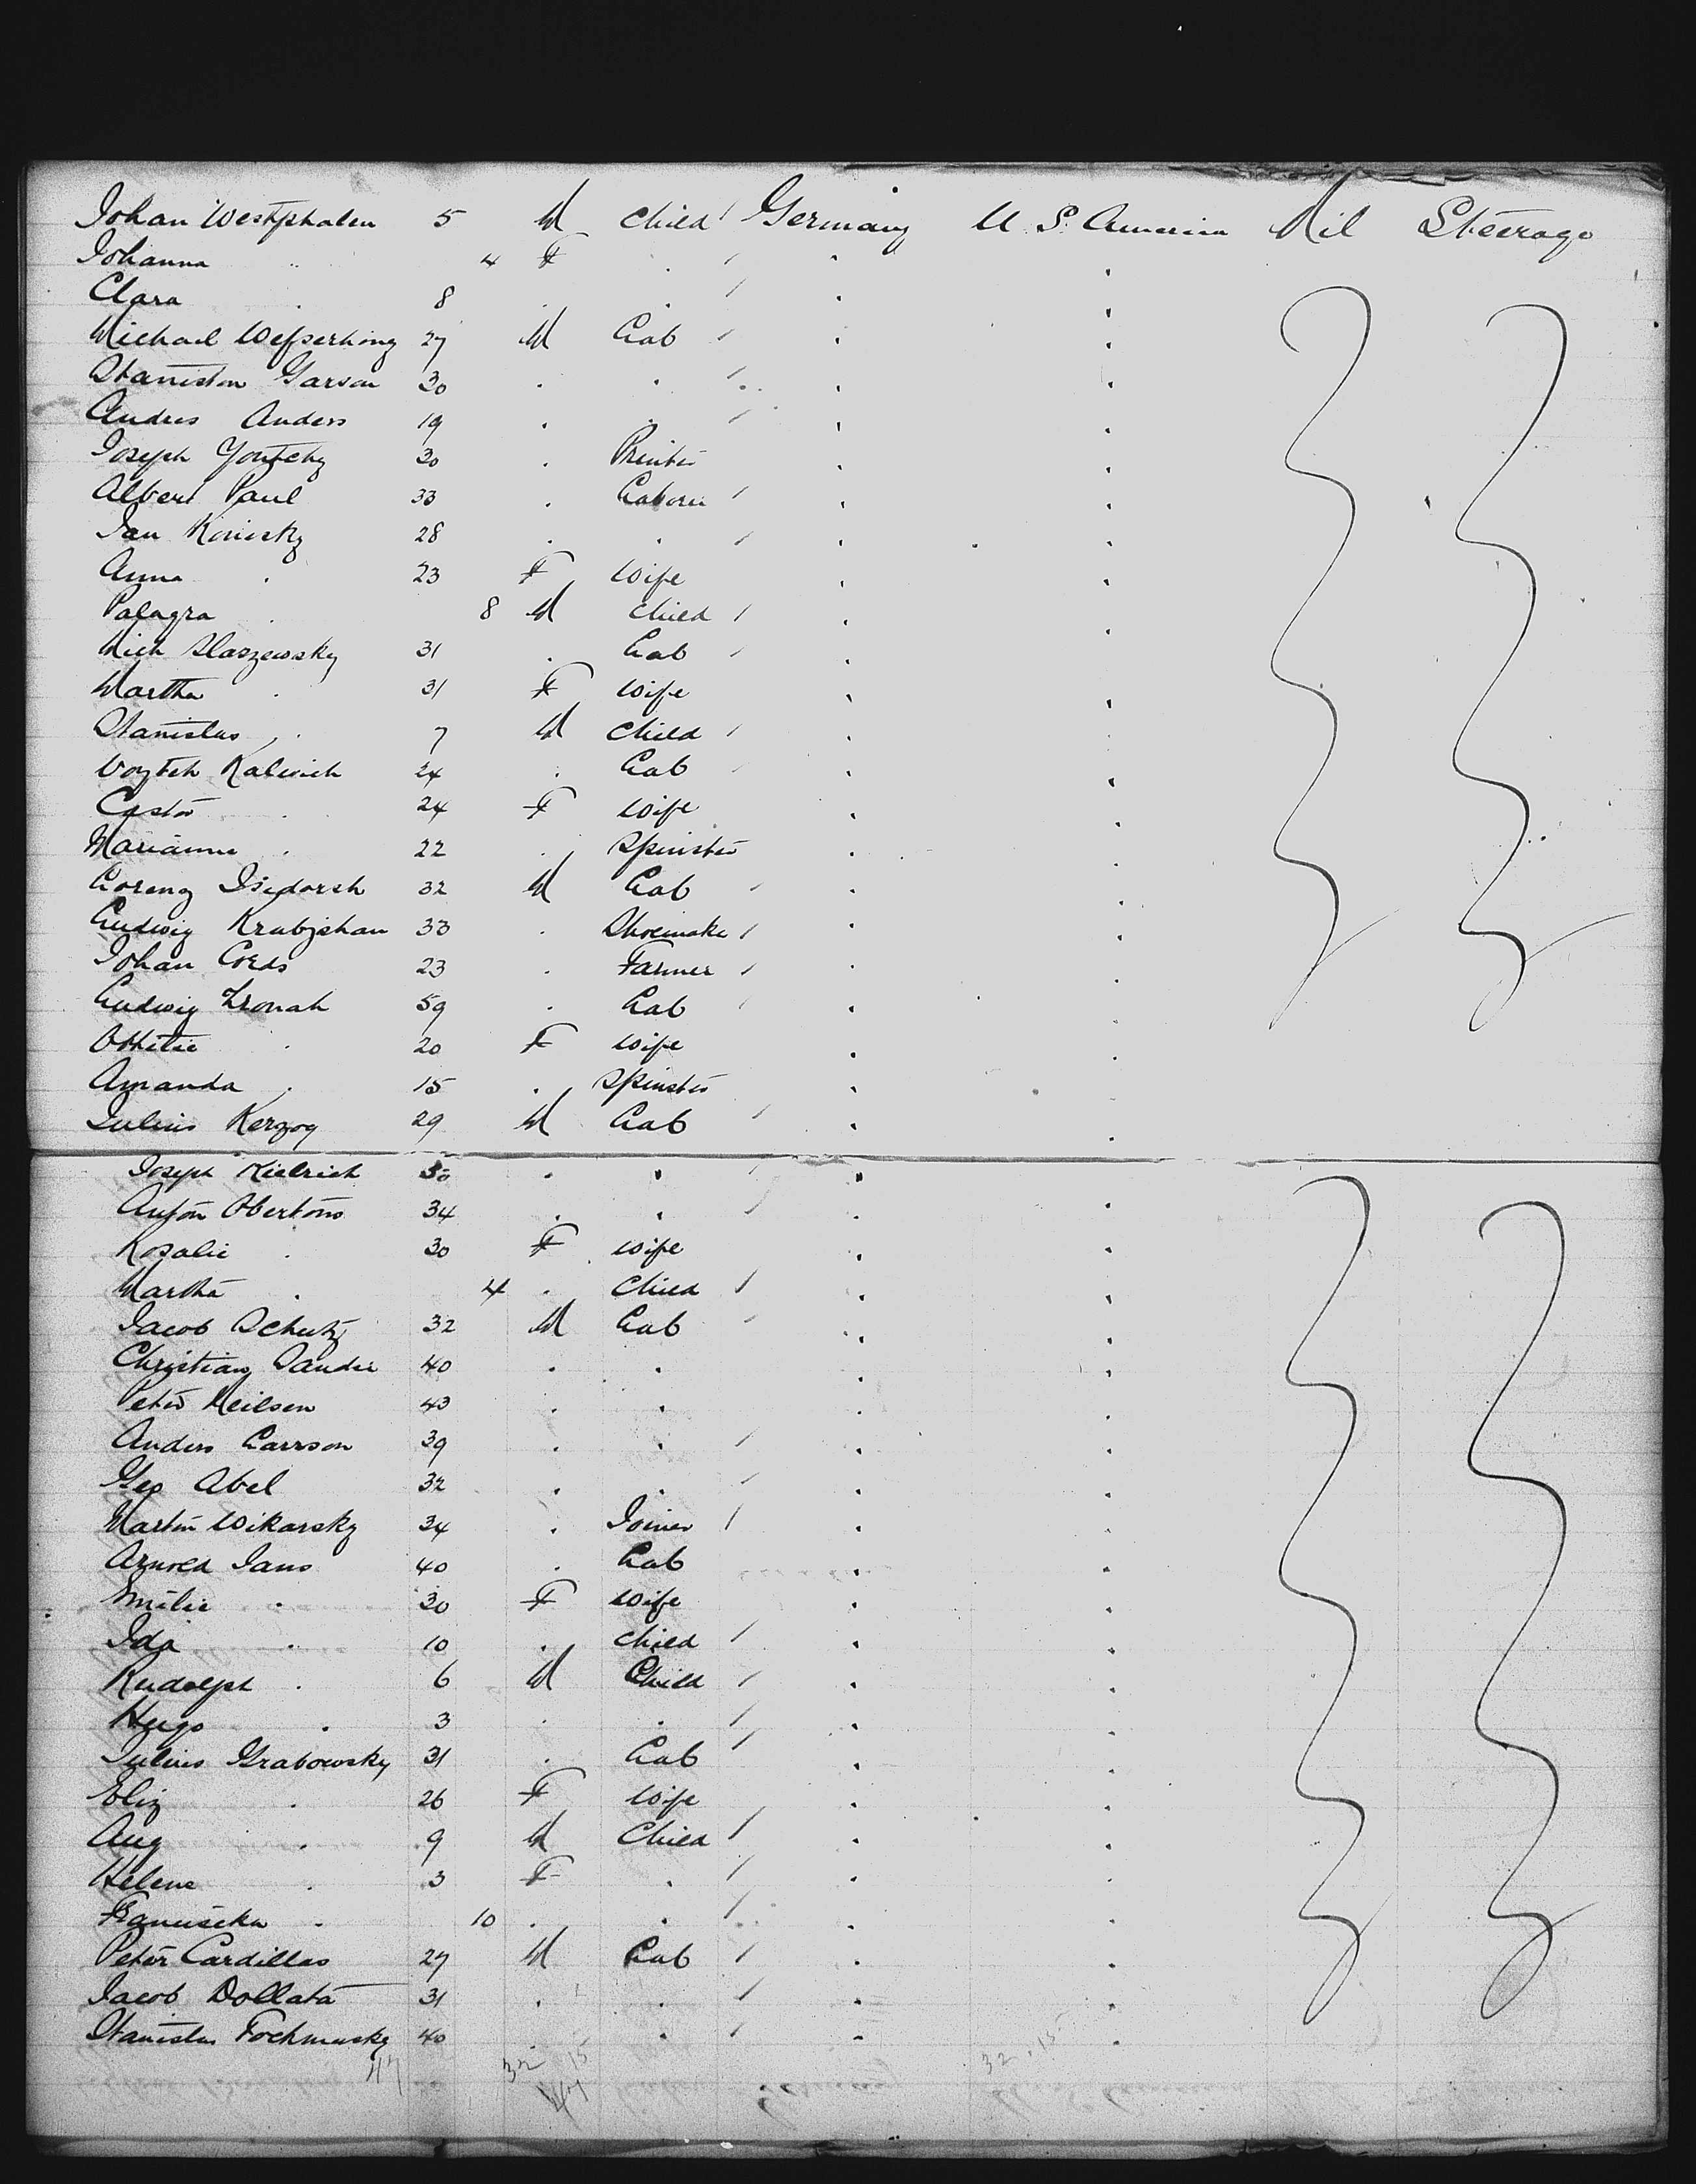 Johan Westphalen 5 M Child / Germany U.S. America Nil Steerage
Johanna " 4 F . / . .
Clara . 8 . . / . .
Michael 27 M Lab / . .
Garson 30 . . / . .
Andres Anders 19 . . / . .
Joseph 30 . Printer . .
Albert Paul 33 . Laborer / . .
Jan Konirsky 28 . . / . .
Anna . 23 F Wife . .
Palagra . 8 M Child / . .
Mich Slaszewsky 31 . Lab / . .
Martha . 31 F Wife . .
Stanislus . 7 M Child / . .
Voyteh Kalwich 24 . Lab / . .
. 24 F Wife . .
Marianne . 22 . Spinster . .
Lorenz Isidorsh 32 M Lab / . .
Ludwig 33 . Shoemaker / . .
Johan Cords 23 . Farmer / . .
Ludwig 59 . Lab / . .
Ottilie . 20 F Wife . .
Amanda . 15 . Spinster . .
Julius Kerzog 29 M Lab / . .
Joseph Kielrich 30 . . / .
Anton Obertons 34 . . / . .
Rosalie . 30 F Wife . .
Martha . 4 . Child / . .
Jacob Schutz 32 M Lab / . .
Christian Sander 40 . . . .
Peter Neilson 43 . . . .
Anders Larrson 39 . . / . .
Geo Abel 32 . . / . .
Martin Wikarsky 34 . Joiner / . .
Arnold Jans 40 . Lab . .
Emilie . 30 F Wife . .
Ida " 10 . Child / . .
Rudolph . 6 M Child / . .
Hugo . 3 . . / . .
Julius Grabowsky 31 . Lab / . .
Eliz . 26 F Wife . .
Aug . 9 M Child / . .
Helene . 3 F . / . .
Franciscka . 10 . . / . .
Peter Cardillas 27 M Lab / . .
Jacob Dollata 31 . . / . .
Stanislus Tochmusky 40 . . / . .
47 32 15 32.15
47